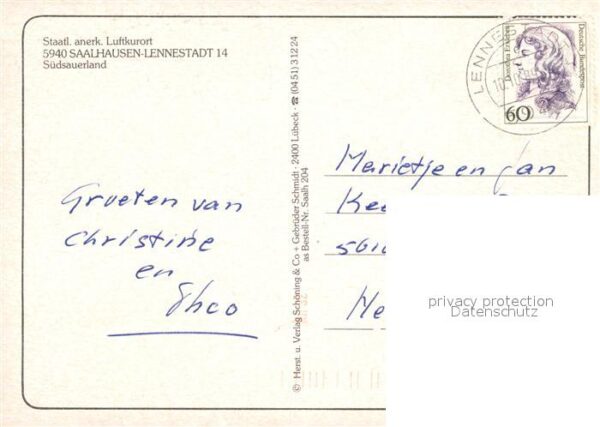 Staatl. anerk. Luftkurort
5940 SAALHAUSEN-LENNESTADT 14
Südsauerland
Groeten van
Christine
en
Theo
© Herst. u. Verlag Schöning & Co + Gebrüder Schmidt · 2400 Lübeck · ☎ (0451) 31224
as Bestell-Nr. Saalh 204
LENNES
Deutsche Bundespost
60
Marietje en Jan
privacy protection
Datenschutz